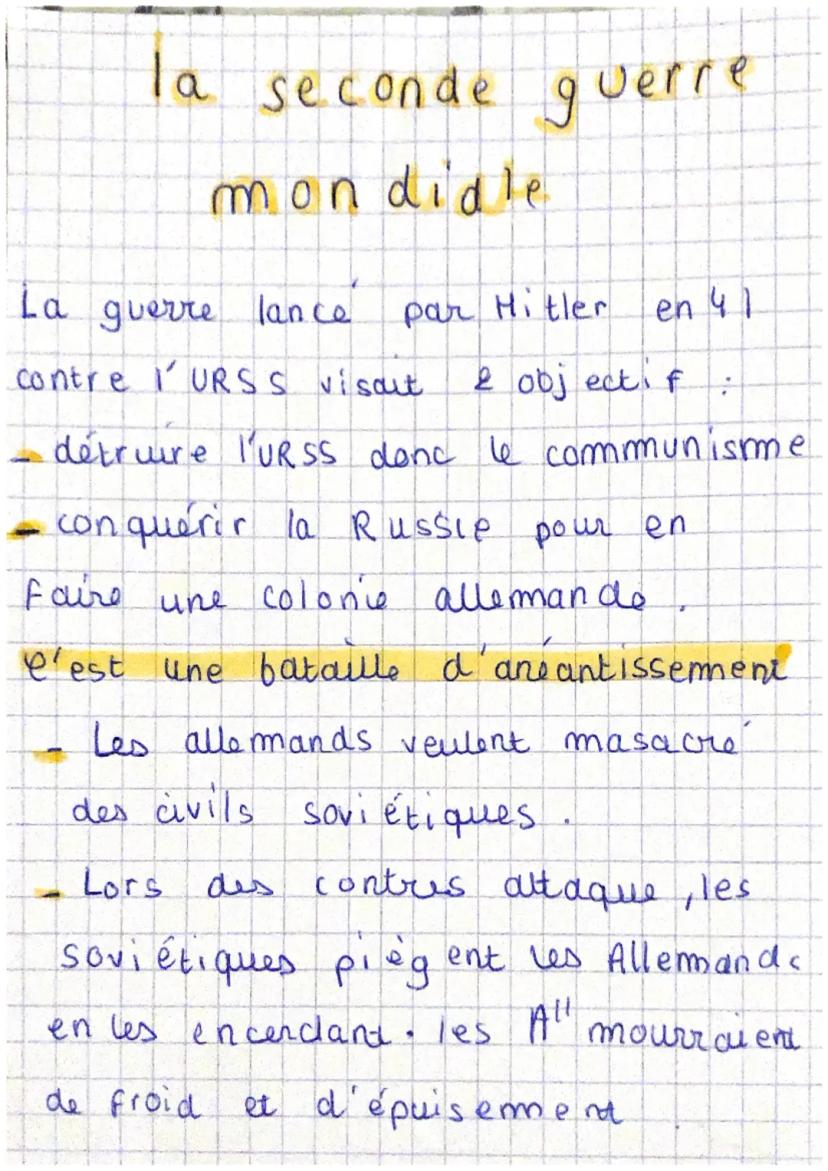 la seconde guerre
mondiale
La guerre lancé par Hitler en 41
contre l'URSS visait 2 objectif :
- détruire l'URSS donc le communisme
- conquérir la Russie pour en
faire une colonie allemande.
C'est une bataille d'anéantissement
- Les allemands veulent masacré
des civils soviétiques.
- Lors des contres attaque, les
soviétiques piègent les Allemands
en les encerclant. les All mourraient
de froid et d'épuisement